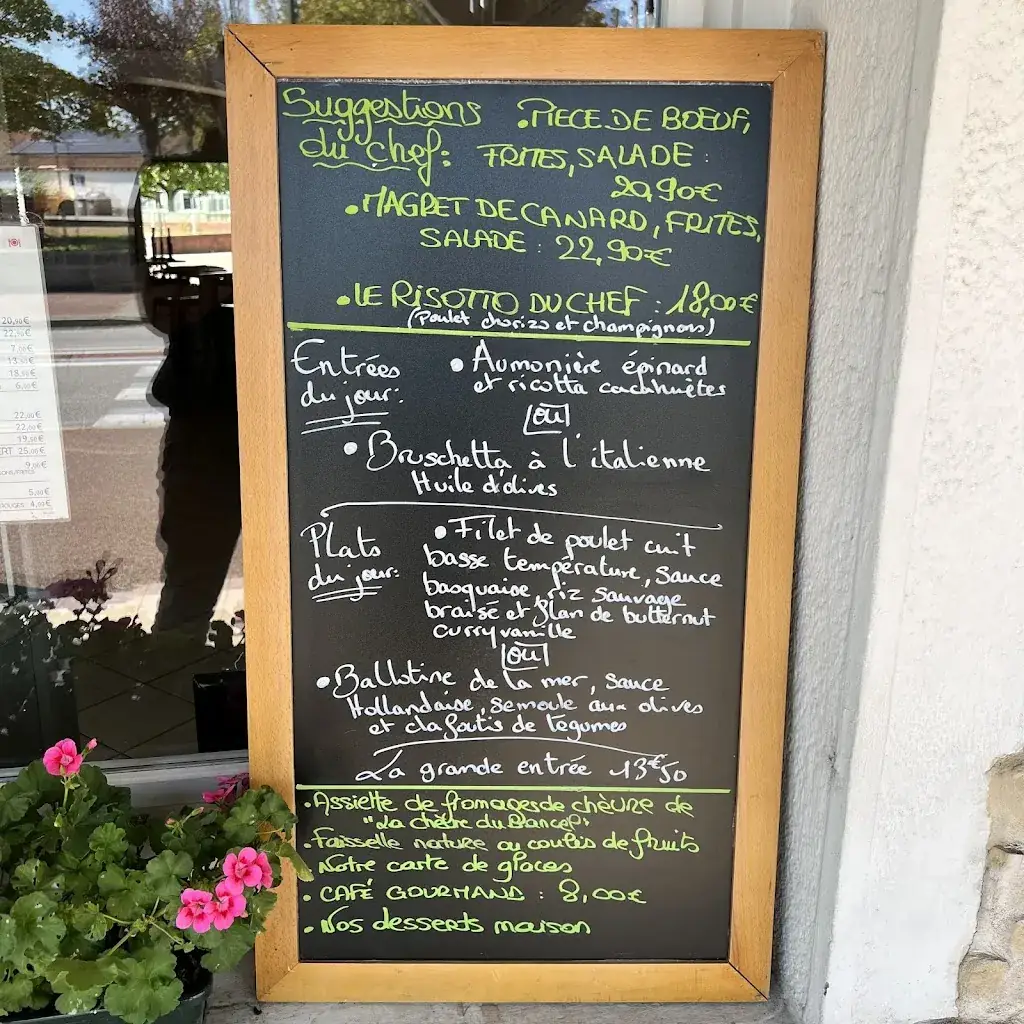 Suggestions
du chef:
• PIECE DE BOEUF,
FRITES, SALADE :
20,90€
• MAGRET DE CANARD, FRITES,
SALADE : 22,90€
• LE RISOTTO DU CHEF : 18,00€
(Poulet chorizo et champignons)
Entrées
du jour:
• Aumonière épinard
et ricotta cacahuètes
ou
• Bruschetta à l'italienne
Huile d'olives
Plats
du jour:
• Filet de poulet cuit
basse température, sauce
basquaise, riz sauvage
braisé et flan de butternut
curry vanille
ou
• Ballotine de la mer, sauce
Hollandaise, semoule aux olives
et clafoutis de légumes
La grande entrée 13€50
• Assiette de fromages de chèvre de
"La chèvre du
• Faisselle nature ou coulis de fruits
• Notre carte de glaces
• CAFÉ GOURMAND : 8,00€
• Nos desserts maison
20,90€
22,90€
7,00€
18,00€
6,00€
22,00€
22,00€
19,50€
ERT 25,00€
9,00€
5,00€
ROUGES 4,00€